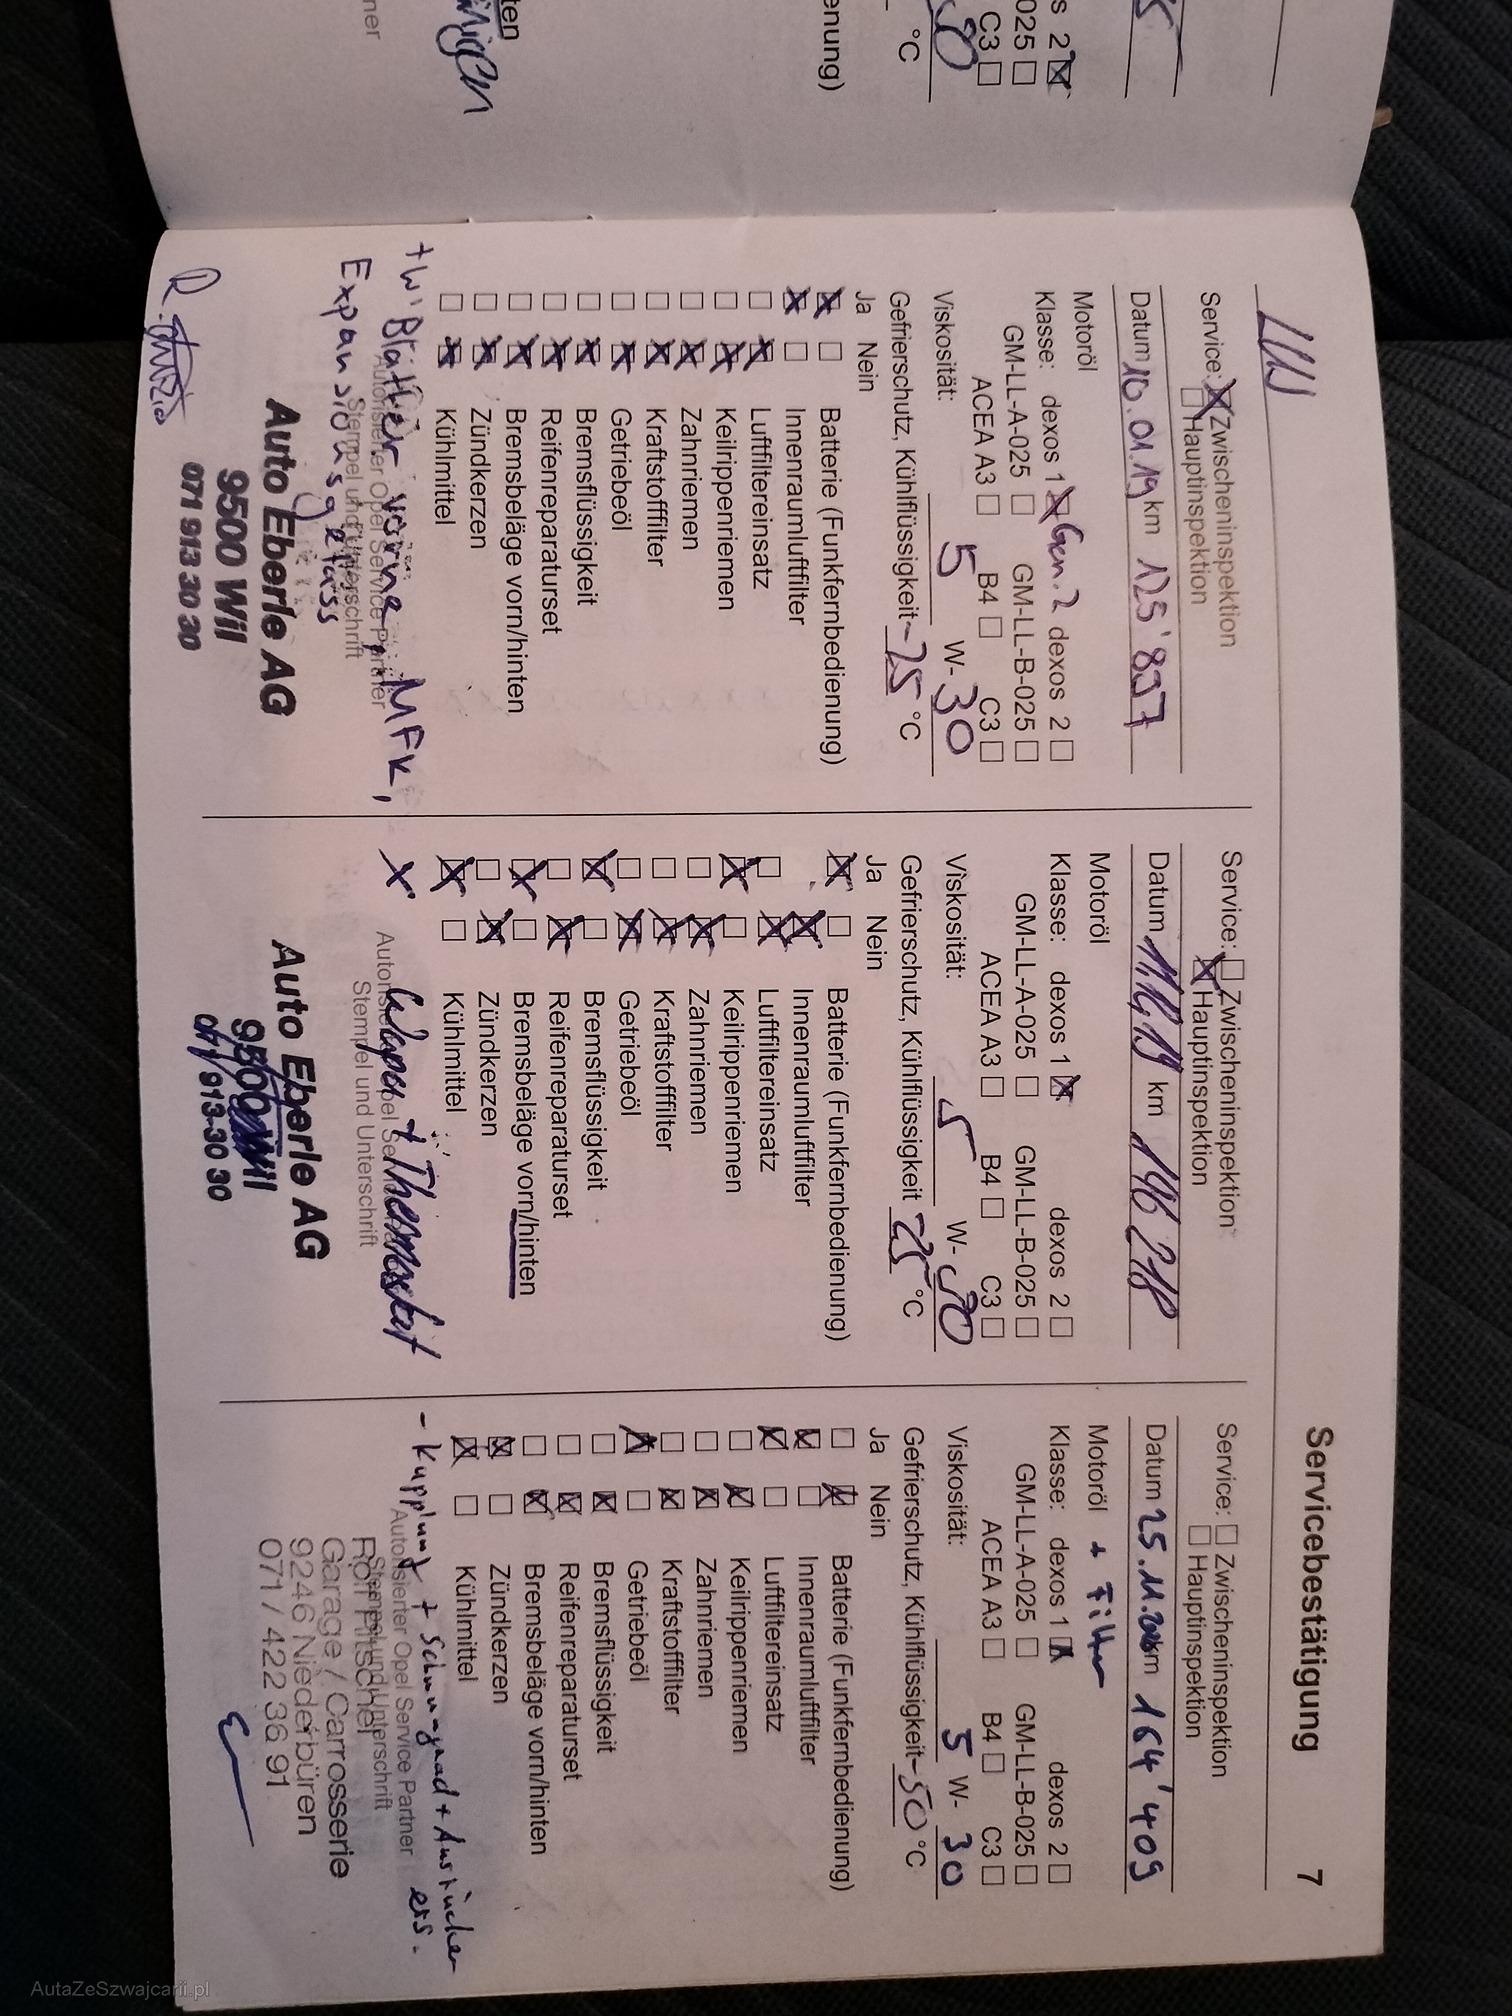 Servicebestätigung 7
Service: ☒ Zwischeninspektion
☐ Hauptinspektion
Datum 10.01.19 km 125'837
Motoröl
Klasse: dexos 1 ☒ Gen.2 dexos 2 ☐
GM-LL-A-025 ☐ GM-LL-B-025 ☐
ACEA A3 ☐ B4 ☐ C3 ☐
Viskosität: 5 W-30
Gefrierschutz, Kühlflüssigkeit -25 °C
Ja Nein
☒ ☐ Batterie (Funkfernbedienung)
☒ ☐ Innenraumluftfilter
☐ ☒ Luftfiltereinsatz
☐ ☒ Keilrippenriemen
☐ ☒ Zahnriemen
☐ ☒ Kraftstofffilter
☐ ☒ Getriebeöl
☐ ☒ Bremsflüssigkeit
☐ ☒ Reifenreparaturset
☐ ☒ Bremsbeläge vorn/hinten
☐ ☒ Zündkerzen
☐ ☒ Kühlmittel
+ W'Blätter vorne, MFK,
Expansionsgefäss
Autorisierter Opel Service Partner
Stempel und Unterschrift
Auto Eberle AG
9500 Wil
071 913 30 30
Service: ☐ Zwischeninspektion
☒ Hauptinspektion
Datum 11.12.19 km 146 218
Motoröl
Klasse: dexos 1 ☒ dexos 2 ☐
GM-LL-A-025 ☐ GM-LL-B-025 ☐
ACEA A3 ☐ B4 ☐ C3 ☐
Viskosität: 5 W-30
Gefrierschutz, Kühlflüssigkeit -25 °C
Ja Nein
☒ ☐ Batterie (Funkfernbedienung)
☐ ☒ Innenraumluftfilter
☐ ☒ Luftfiltereinsatz
☒ ☐ Keilrippenriemen
☐ ☒ Zahnriemen
☐ ☒ Kraftstofffilter
☐ ☒ Getriebeöl
☒ ☐ Bremsflüssigkeit
☐ ☒ Reifenreparaturset
☒ ☐ Bremsbeläge vorn/hinten
☐ ☒ Zündkerzen
☒ ☐ Kühlmittel
X Wapu + Thermostat
Stempel und Unterschrift
Auto Eberle AG
9500 Wil
071 913 30 30
Service: ☐ Zwischeninspektion
☐ Hauptinspektion
Datum 25.11.2020 km 164'409
Motoröl + Filter
Klasse: dexos 1 ☒ dexos 2 ☐
GM-LL-A-025 ☐ GM-LL-B-025 ☐
ACEA A3 ☐ B4 ☐ C3 ☐
Viskosität: 5 W-30
Gefrierschutz, Kühlflüssigkeit -50 °C
Ja Nein
☐ ☒ Batterie (Funkfernbedienung)
☒ ☐ Innenraumluftfilter
☒ ☐ Luftfiltereinsatz
☐ ☒ Keilrippenriemen
☐ ☒ Zahnriemen
☐ ☒ Kraftstofffilter
☒ ☐ Getriebeöl
☐ ☒ Bremsflüssigkeit
☐ ☒ Reifenreparaturset
☐ ☒ Bremsbeläge vorn/hinten
☒ ☐ Zündkerzen
☒ ☐ Kühlmittel
- Kupplung + Schwungrad + Ausrücker ers.
Autorisierter Opel Service Partner
Stempel und Unterschrift
Garage / Carrosserie
9246 Niederbüren
071 / 422 36 91
AutaZeSzwajcarii.pl